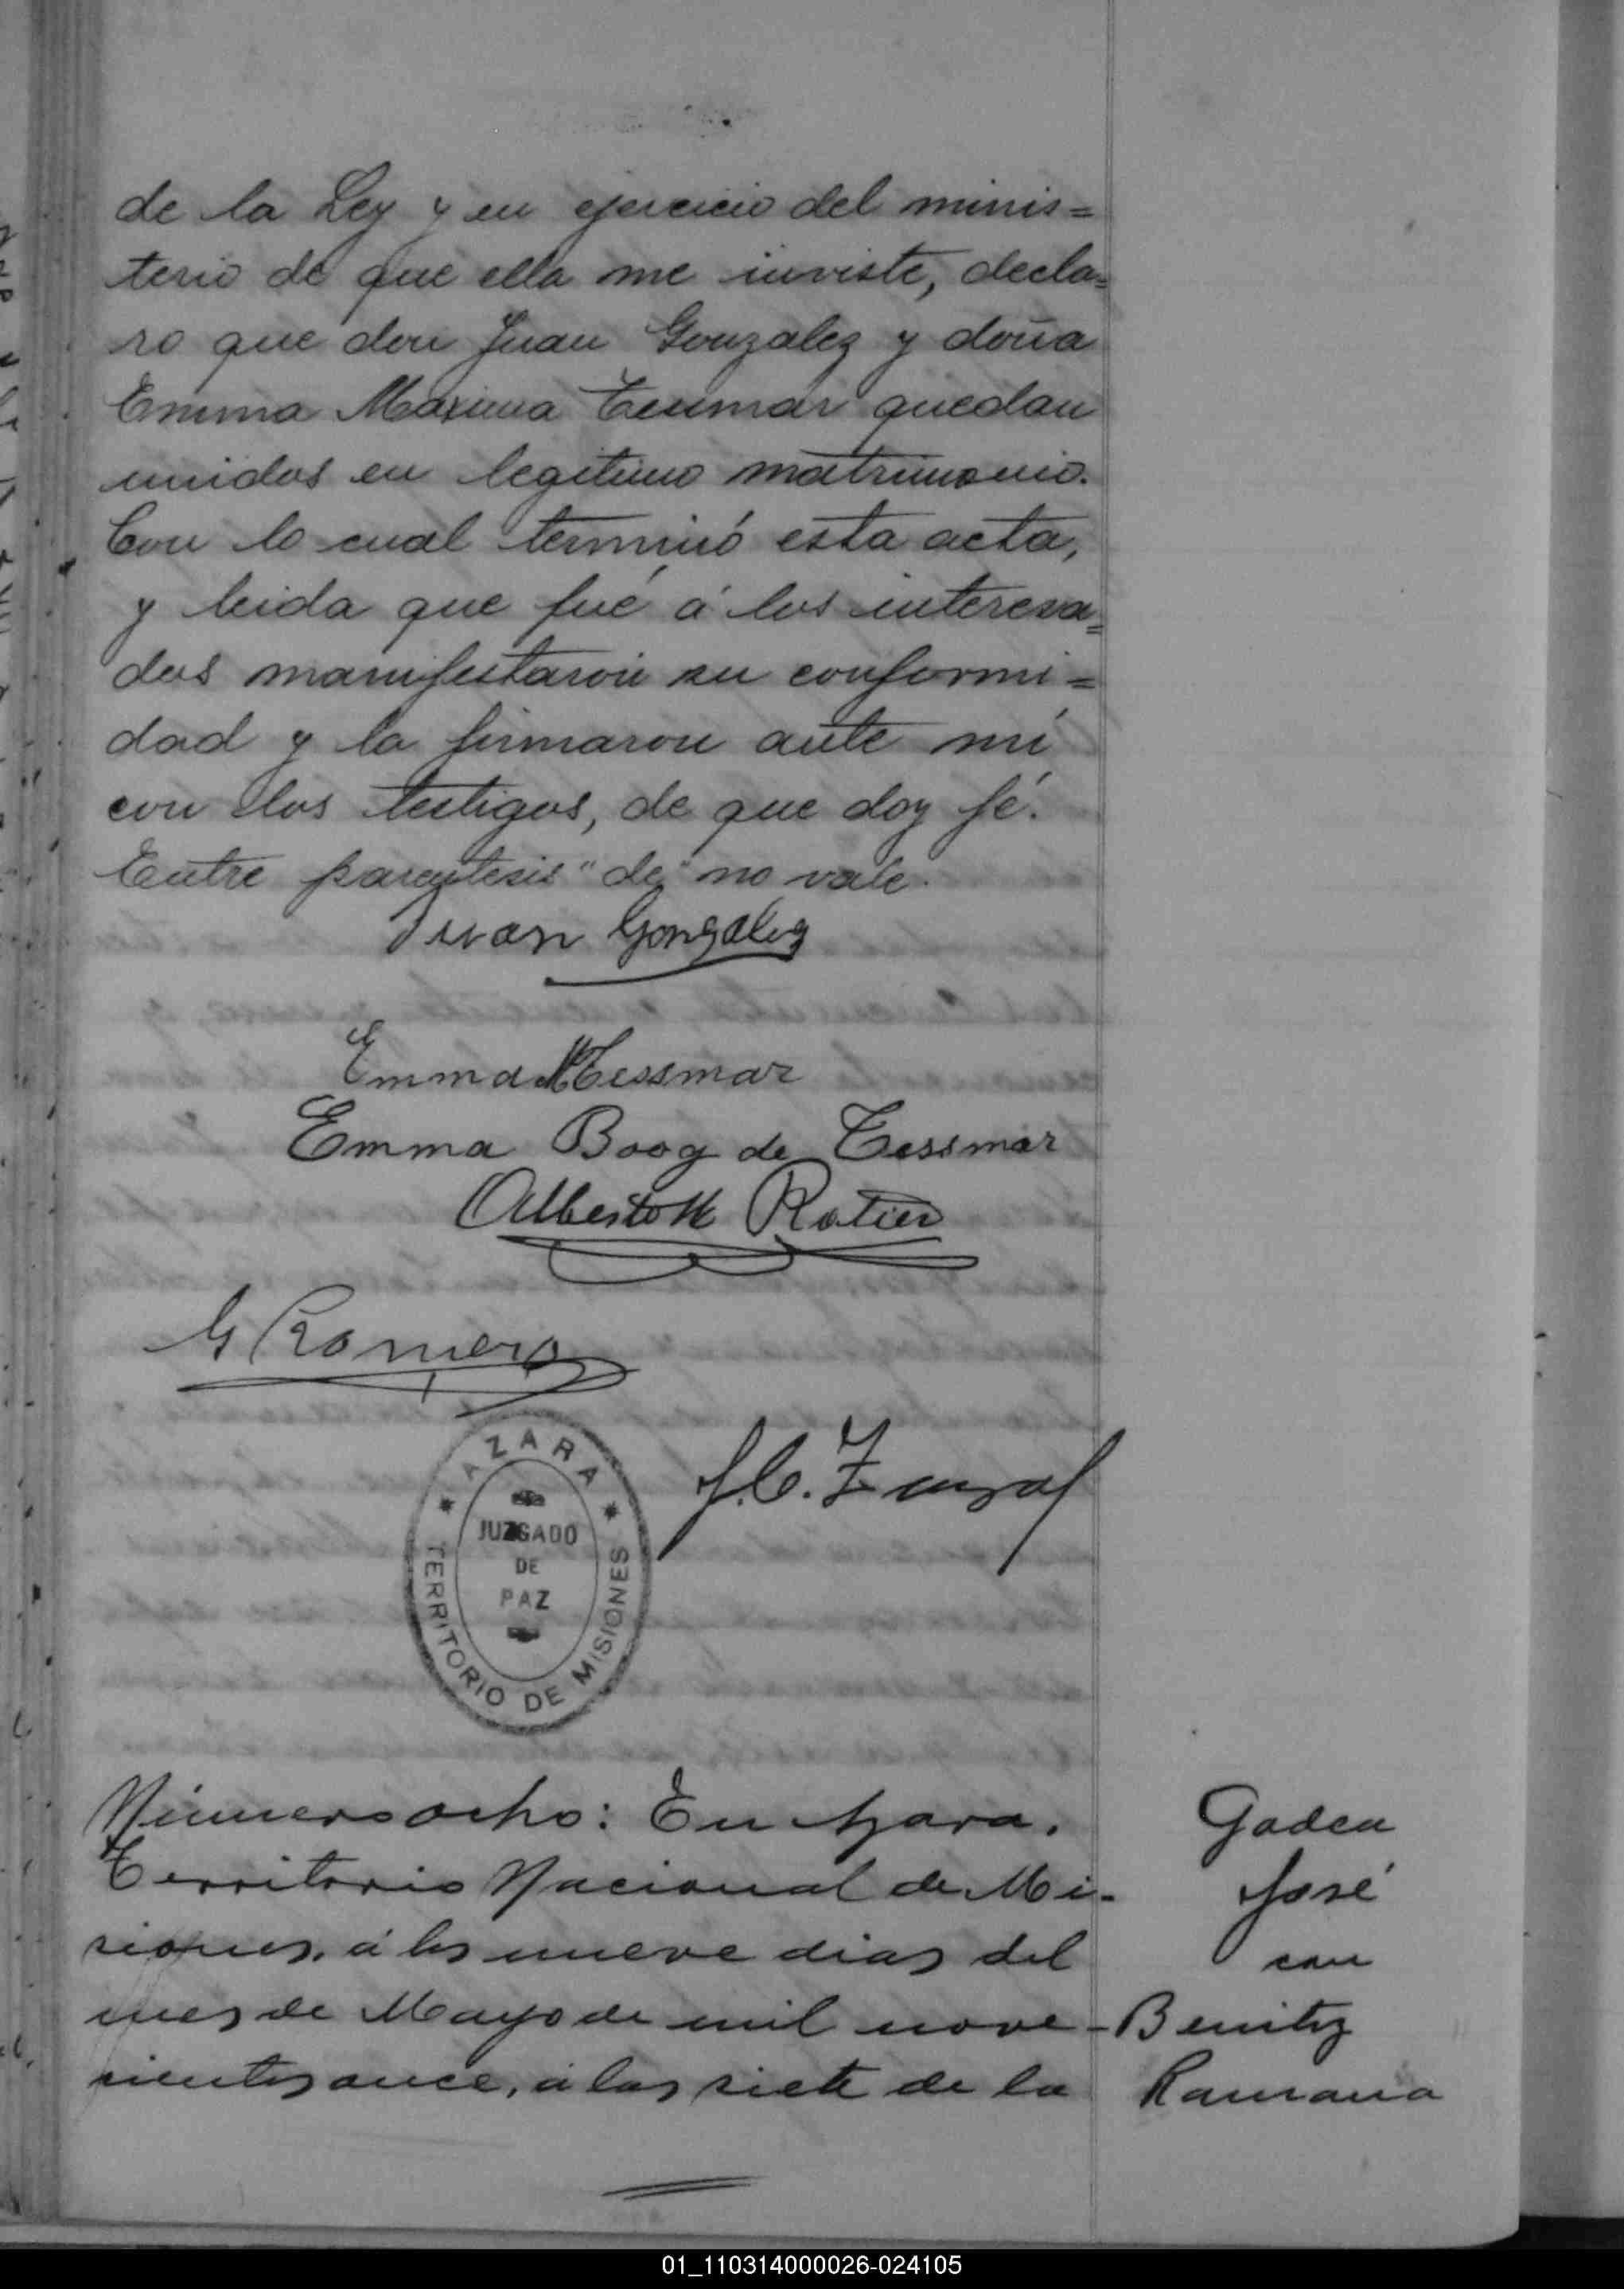 de la Ley y en ejercicio del minis=
terio de que ella me inviste, decla=
ro que don Juan Gonzalez y doña
Emma Maxima Tesmar quedan
unidos en legitimo matrimonio.
Con lo cual terminó esta acta,
y leida que fué á los interesa=
dos manifestaron su conformi=
dad y la firmaron ante mí
con los testigos, de que doy fé.
Entre parentesis "de" no vale.
Juan Gonzalez
Emma M Tessmar
Emma Boog de Tessmar
Alberto Ratier
G Romero
J. C.
AZARA
JUZGADO
DE
PAZ
TERRITORIO DE MISIONES
Número ocho: En Azara,
Territorio Nacional de Mi-
siones, á los nueve dias del
mes de Mayo de mil nove-
cientos once, á las siete de la
Gadea
José
con
Benitez
Ramona
01_110314000026-024105